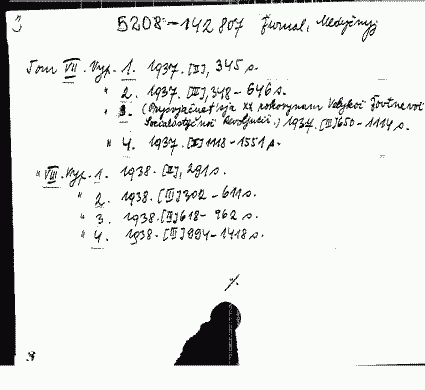 5208-142 807 Žurnal, Medyčnyj
Tom VII. Vyp. 1. 1937. [II], 345 s.
" 2. 1937. [II], 348-646 s.
" 3. (Prysvjačujet'sja XX rokovynam Velykoi Žovtnevoi
Socialistyčnoi Revoljucii.) 1937. [II] 650-1114 s.
" 4. 1937. [II] 1118-1551 s.
" VIII. Vyp. 1. 1938. [II], 291 s.
" 2. 1938. [II] 302-611 s.
" 3. 1938. [II] 618-962 s.
" 4. 1938. [II] 994-1418 s.
./.